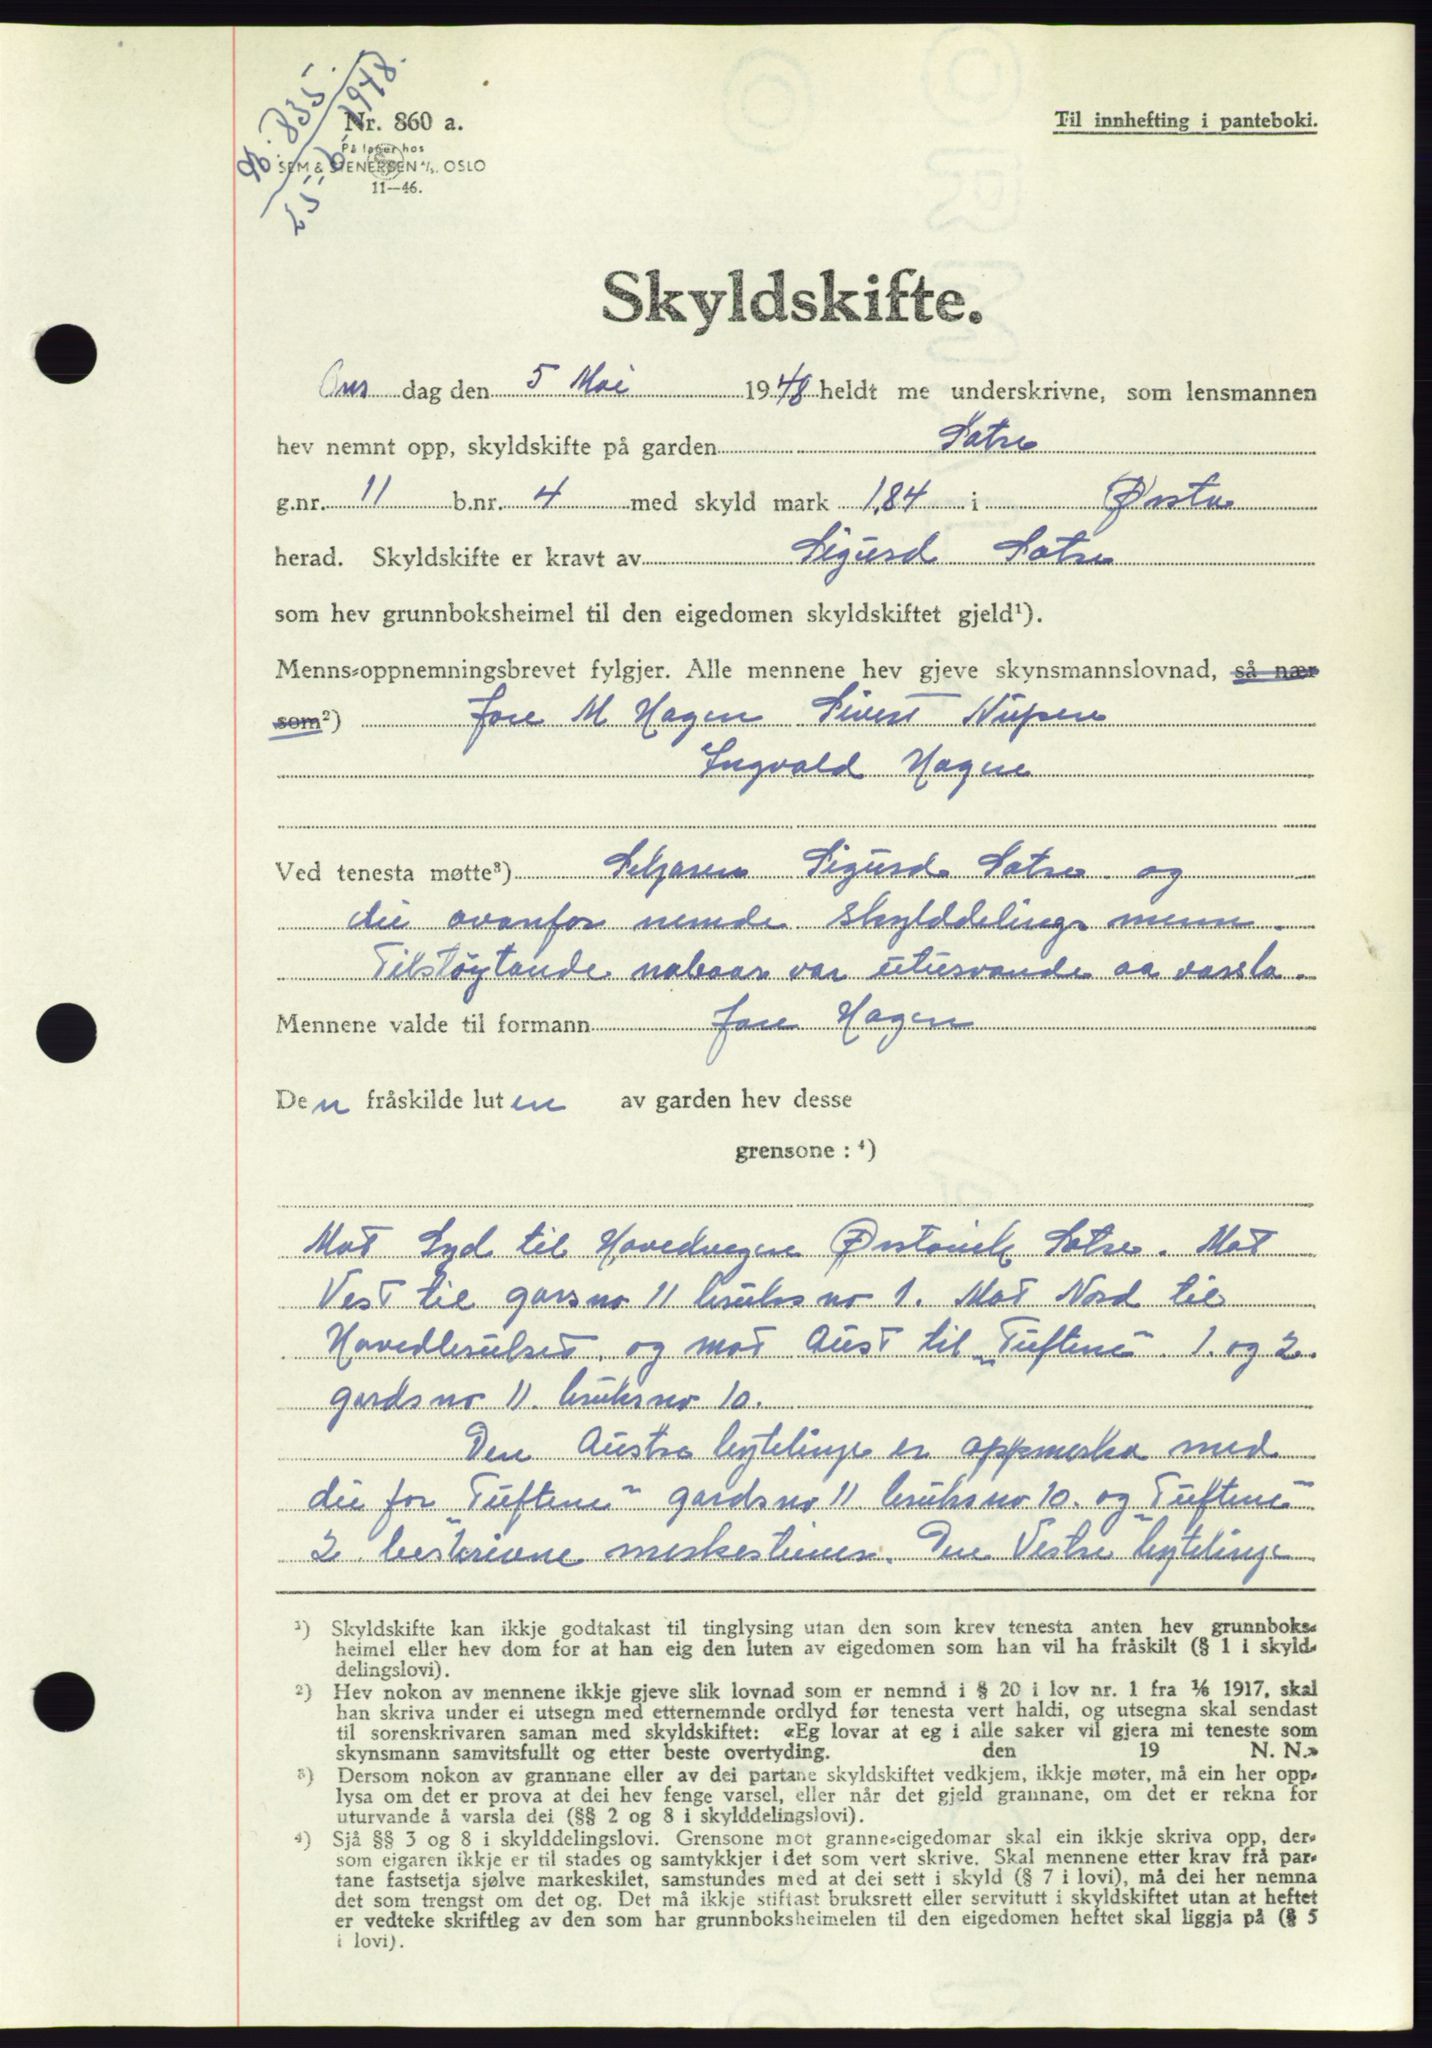 Nb. 835.
25-6-1948.
Nr. 860 a.
På lager hos
SEM & STENERSEN A/S. OSLO
11—46.
Til innhefting i panteboki.
Skyldskifte.
Ons dag den 5 Mai 1948 heldt me underskrivne, som lensmannen
hev nemnt opp, skyldskifte på garden Satre
g.nr. 11 b.nr. 4 med skyld mark 1,84 i Ørsta
herad. Skyldskifte er kravt av Sigurd Satre
som hev grunnboksheimel til den eigedomen skyldskiftet gjeld¹).
Menns-oppnemningsbrevet fylgjer. Alle mennene hev gjeve skynsmannslovnad, så nær
som²) Jon M Hagen Sivert Nupen
Ingvald Hagen
Ved tenesta møtte³) Seljaren Sigurd Satre og
dei ovanfor nemde skylddelings menn.
Tilstøytande naboar var uturvande aa varsla.
Mennene valde til formann Jon Hagen
Den fråskilde luten av garden hev desse
grensone : ⁴)
Mot Syd til Hovedvegen Ørstavik Satre. Mot
Vest til garsno 11 bruks no 1. Mot Nord til
Hovedbruket, og mot Aust til "Tuftene" 1. og 2.
gardsno 11. bruksno 10.
Den Austre bytelinje er oppmerka med
dei for "Tuftene" gardsno 11 bruksno 10. og "Tuftene"
2 beskrivne merkesteiner. Den Vestre bytelinje
¹) Skyldskifte kan ikkje godtakast til tinglysing utan den som krev tenesta anten hev grunnboks-
heimel eller hev dom for at han eig den luten av eigedomen som han vil ha fråskilt (§ 1 i skyld-
delingslovi).
²) Hev nokon av mennene ikkje gjeve slik lovnad som er nemnd i § 20 i lov nr. 1 fra 1/6 1917, skal
han skriva under ei utsegn med etternemnde ordlyd før tenesta vert haldi, og utsegna skal sendast
til sorenskrivaren saman med skyldskiftet: «Eg lovar at eg i alle saker vil gjera mi teneste som
skynsmann samvitsfullt og etter beste overtyding. den 19 N. N.»
³) Dersom nokon av grannane eller av dei partane skyldskiftet vedkjem, ikkje møter, må ein her opp-
lysa om det er prova at dei hev fenge varsel, eller når det gjeld grannane, om det er rekna for
uturvande å varsla dei (§§ 2 og 8 i skylddelingslovi).
⁴) Sjå §§ 3 og 8 i skylddelingslovi. Grensone mot granne-eigedomar skal ein ikkje skriva opp, der-
som eigaren ikkje er til stades og samtykkjer i det som vert skrive. Skal mennene etter krav frå par-
tane fastsetja sjølve markeskilet, samstundes med at dei sett i skyld (§ 7 i lovi), må dei her nemna
det som trengst om det og. Det må ikkje stiftast bruksrett eller servitutt i skyldskiftet utan at heftet
er vedteke skriftleg av den som har grunnboksheimelen til den eigedomen heftet skal liggja på (§ 5
i lovi).